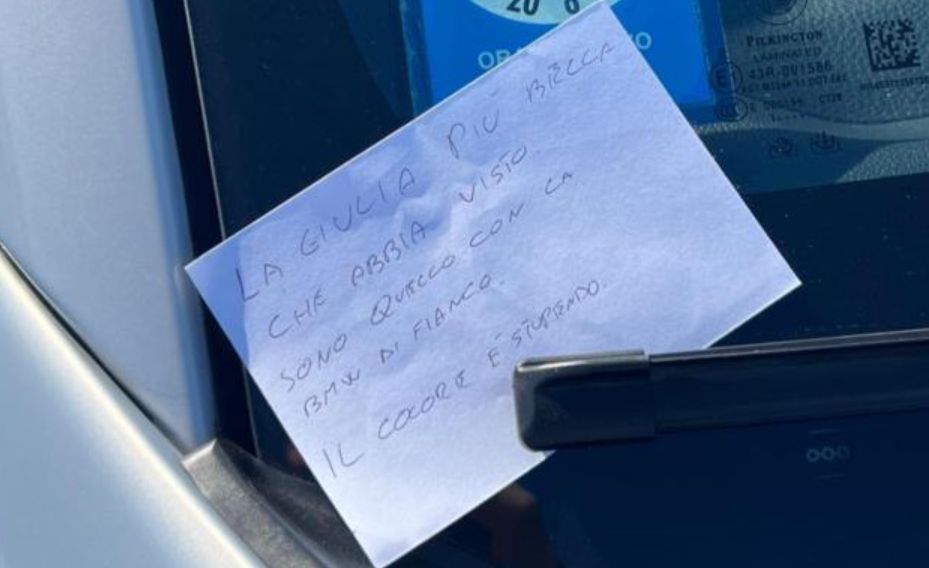 20 6
PILKINGTON
LAMINATED
43R-001586
LA GIULIA PIÙ BELLA
CHE ABBIA VISTO.
SONO QUELLO CON LA
BMW DI FIANCO.
IL COLORE È STUPENDO.